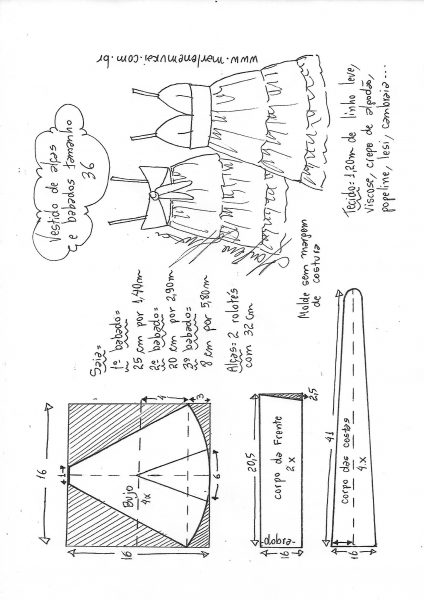 www.marlenemukai.com.br
Vestido de alças
e babados tamanho
36
Tecido: 1,20m de linho leve,
viscose, crepe de algodão,
popeline, lesi, cambraia...
Saia=
1º babado=
25 cm por 1,40m
2º babado=
20 cm por 2,90m
3º babado=
8 cm por 5,80m
Alças= 2 rolotês
com 32 cm
Molde sem margem
de costura
16
1
16
Bojo
4x
4
3
6
20,5
2,5
corpo da Frente
2x
-dobra-
16
41
corpo das costas
4x
16